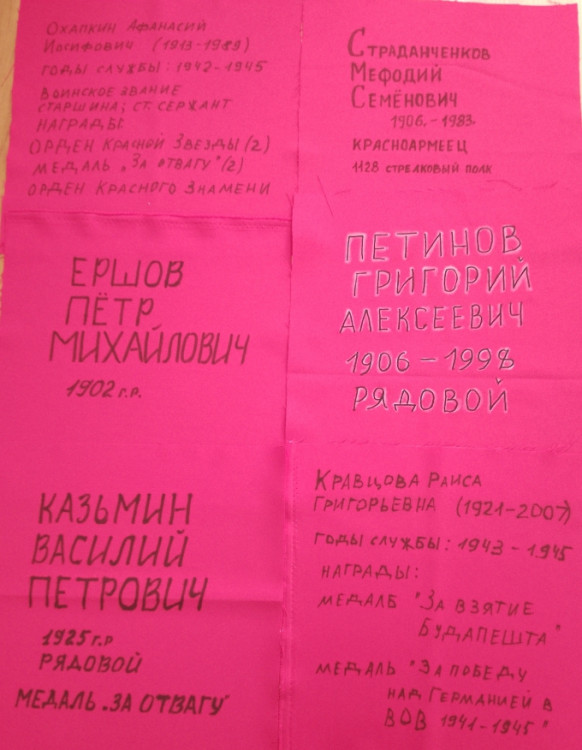 Охапкин Афанасий
Иосифович (1913-1989)
годы службы: 1942-1945
Воинское звание
старшина; ст. сержант
награды:
орден Красной Звезды (2)
медаль „За отвагу" (2)
орден Красного Знамени
Страданченков
Мефодий
Семёнович
1906.-1983.
красноармеец
1128 стрелковый полк
ЕРШОВ
ПЁТР
МИХАЙЛОВИЧ
1902 г.р.
ПЕТИНОВ
ГРИГОРИЙ
АЛЕКСЕЕВИЧ
1906 - 1998
РЯДОВОЙ
КАЗЬМИН
ВАСИЛИЙ
ПЕТРОВИЧ
1925 г.р
РЯДОВОЙ
МЕДАЛЬ „ЗА ОТВАГУ"
Кравцова Раиса
Григорьевна (1921-2007)
годы службы: 1943-1945
награды:
медаль "За взятие
Будапешта"
медаль "За победу
над Германией в
ВОВ 1941-1945"